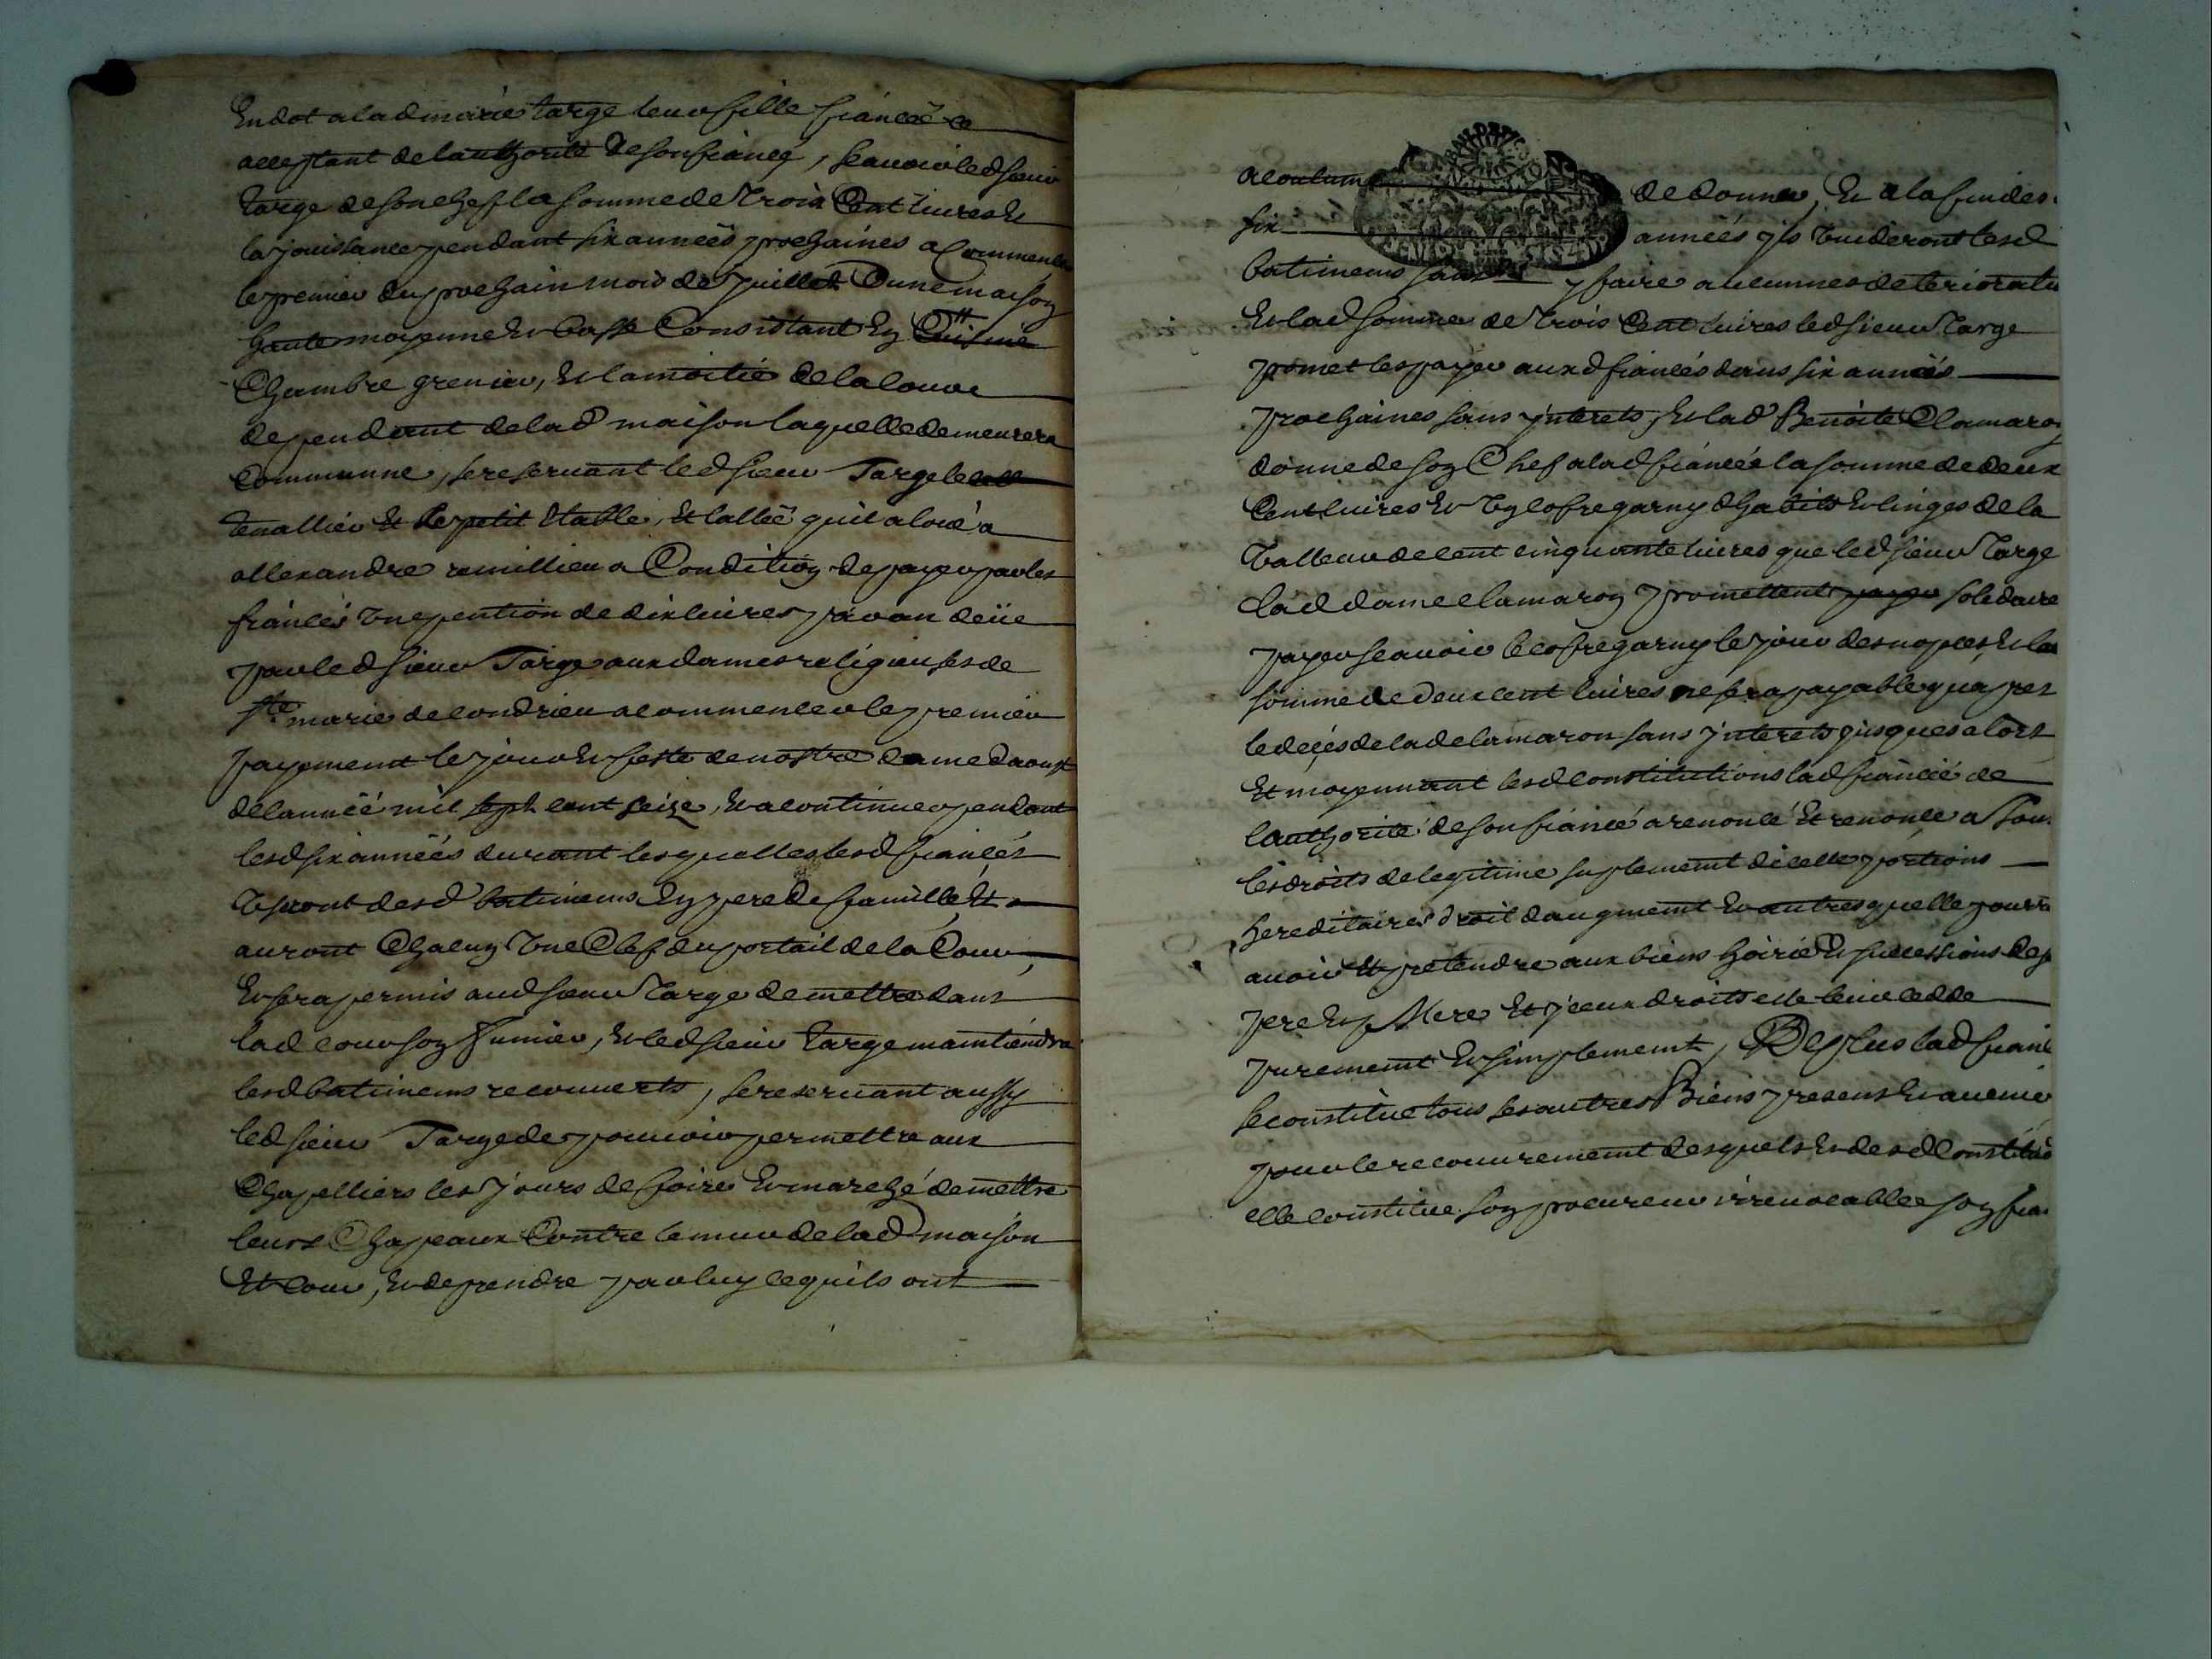 En dot a lad marie targe leur fille fiancée ce
acceptant de lauthorité de son fiancé, scauoir led sieur
targe de son chef la somme de trois Cent liures Et
la jouissance pendant six années prochaines a Commencer
le premier du prochain mois de Juillet Dune maison
haute moyenne Et basse Consistant En Cuisine
Chambre grenier, Et la moitié de la cour
dependant de lad maison laquelle demeurera
Commune, se reseruant led sieur Targe le
tenallier Et le petit Etable, Et lallée quil a loué a
allexandre remillieu a Condition de payer par les
fiancés Une pention de dix liures par an deüe
par led sieur Targe aux dames religieuses de
Ste marie de condrieu a commencer le premier
payement le jour Et feste de nostre dame daoust
de lannée mil sept cent seize, Et a continuer pendant
lesd six années durant lesquelles lesd fiancés
Useront desd batimens En pere de famille, Et
auront Chacun Une Clef du portail de la Cour,
Et sera permis aud sieur Targe de mettre dans
lad cour son fumier, Et led sieur Targe maintiendra
lesd batimens recouuerts, se reseruant aussy
led sieur Targe de pouuoir permettre aux
Chapelliers les jours de foire Et marché de mettre
leurs Chapeaux Contre le mur de lad maison
Et Cour, Et de prendre par luy ce quils ont
acoutumé de donner, Et a la fin des
six années ils Vuideront lesd
batimens sans y faire aucunnes deterioration
Et lad somme de trois Cent liures led sieur Targe
promet les payer auxd fiancés dans six années
prochaines sans jnterets, Et lad Benoite Clamaron
donne de son Chef a lad fiancée la somme de deux
Cent liures Et Un cofre garny dhabits Et linges de la
Valleur de cent cinquante liures que led sieur Targe
lad dame clamaron promettent payer solidaire
payer scauoir le cofre garny le jour des nopces Et la
somme de deux cent liures ne sera payable quapres
le decés de lad clamaron sans jnterets jusques alors
Et moyennant lesd constitutions lad fiancée de
lauthorité de son fiancé a renoncé Et renonce a tous
les droits de legitime suplement dicelle portions
hereditaires droit daugment Et autres quelle pourra
auoir Et pretendre aux biens hoirie Et successions de
pere Et Mere Et jceux droits elle leur cedde
purement Et simplement, De plus lad fianc
se constitue tous ses autres Biens presens Et auenir
pour le recouurement desquels Et desd Constitu
elle constitue son procureur irreuocable son fian